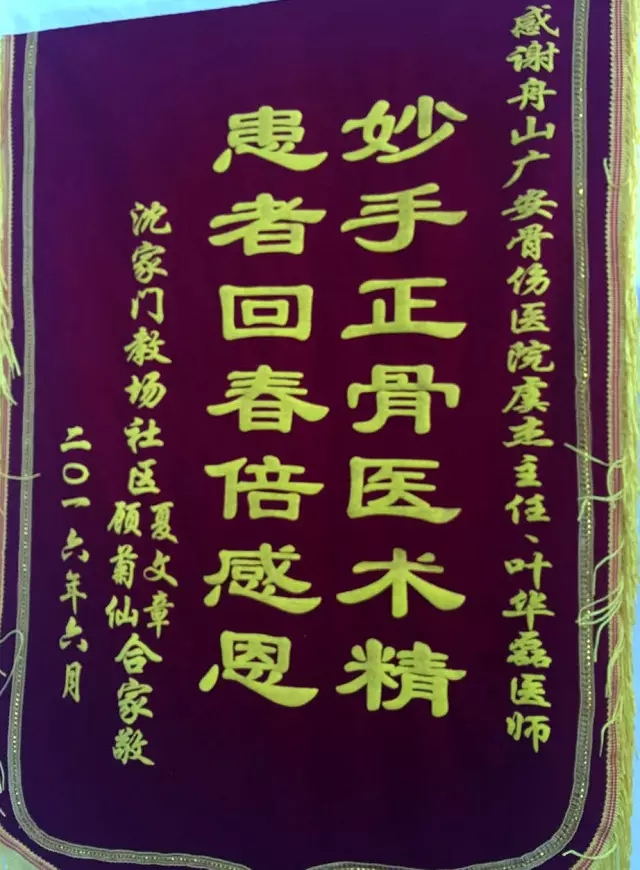 感谢舟山广安骨伤医院虞杰主任、叶华磊医师
妙手正骨医术精
患者回春倍感恩
沈家门教场社区夏文章
顾菊仙合家敬
二〇一六年六月